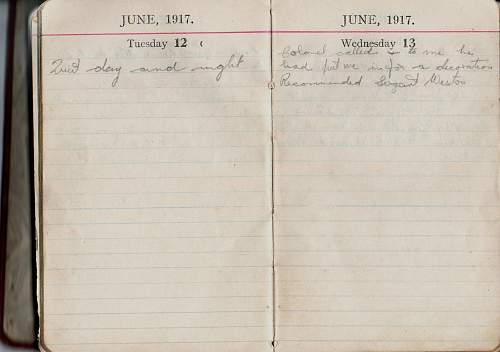 JUNE, 1917.
Tuesday 12
Quiet day and night
JUNE, 1917.
Wednesday 13
Colonel called to me he
had put me in for a decoration
Recommended Sergant Weston